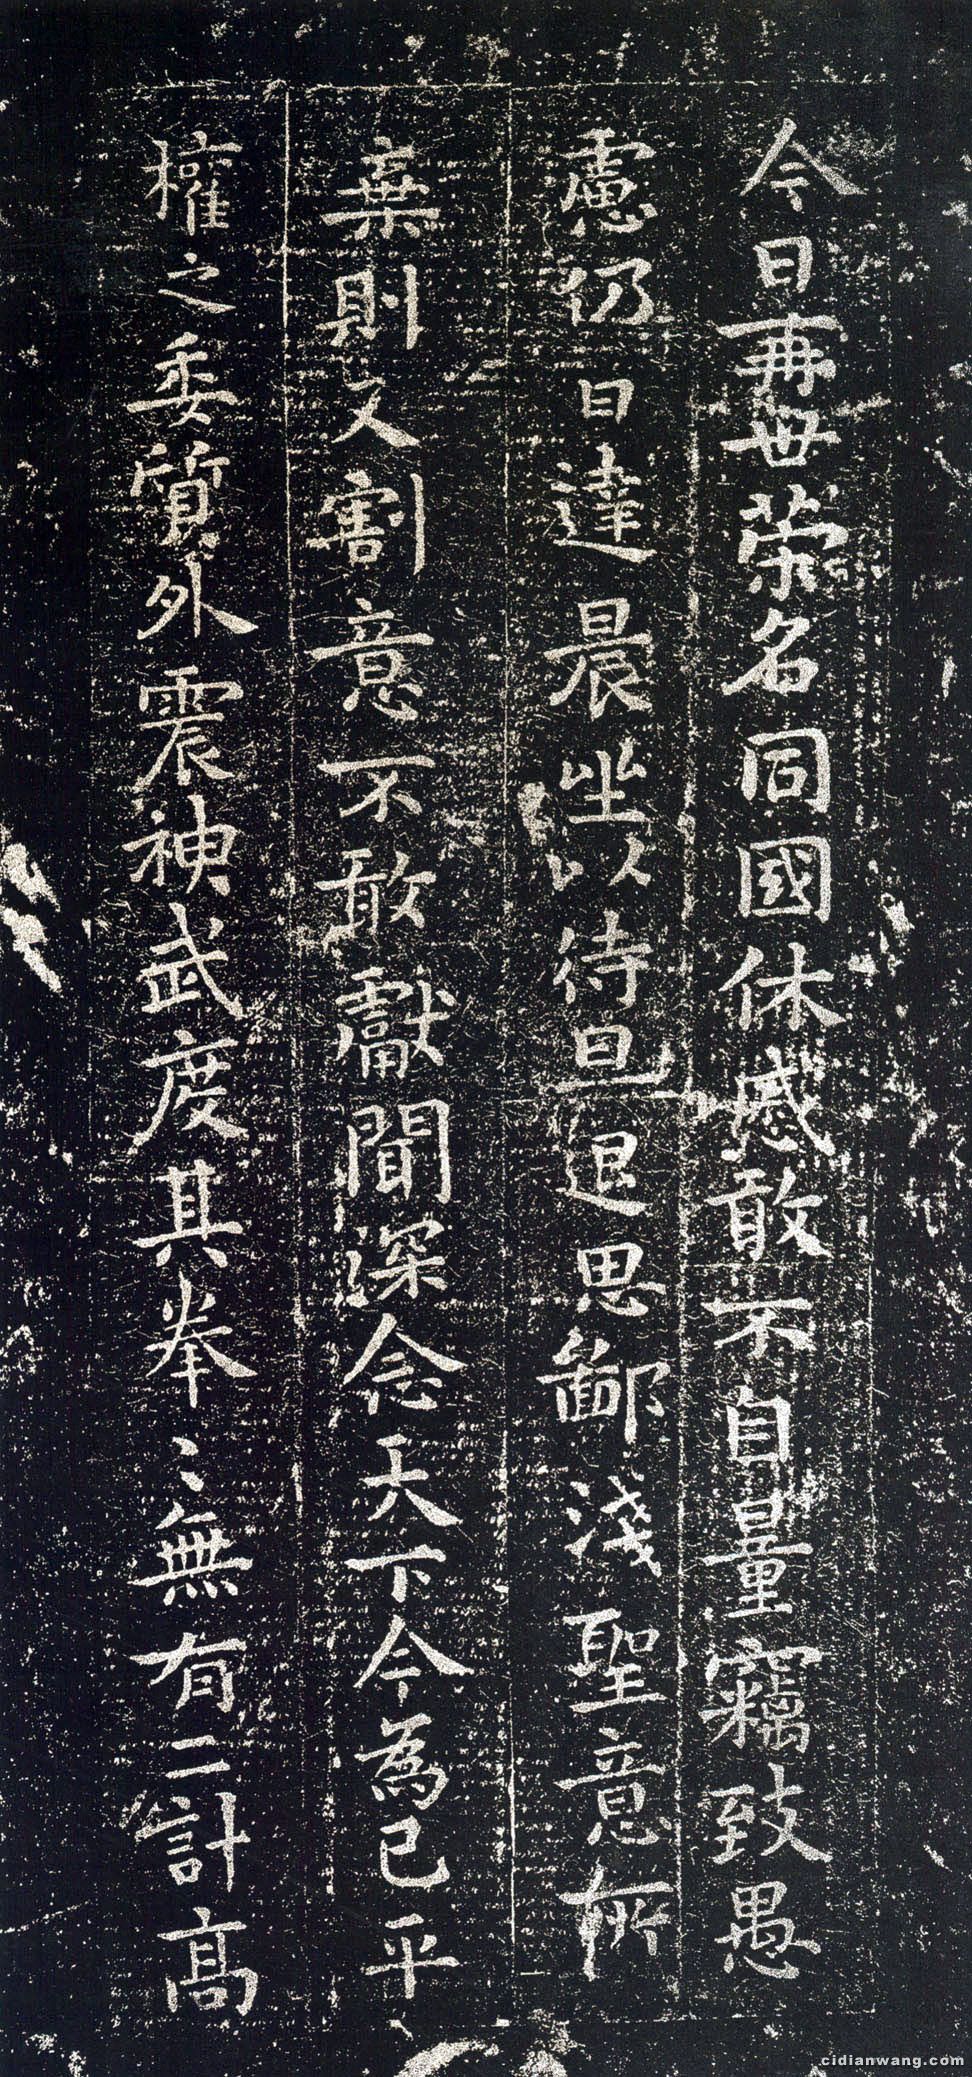 今日再世荣名同國休慼敢不自量竊致愚
慮仍日達晨坐以待旦退思鄙淺聖意所
棄則又割意不敢獻聞深念天下今為已平
權之委質外震神武度其拳〻無有二計高
cidianwang.com